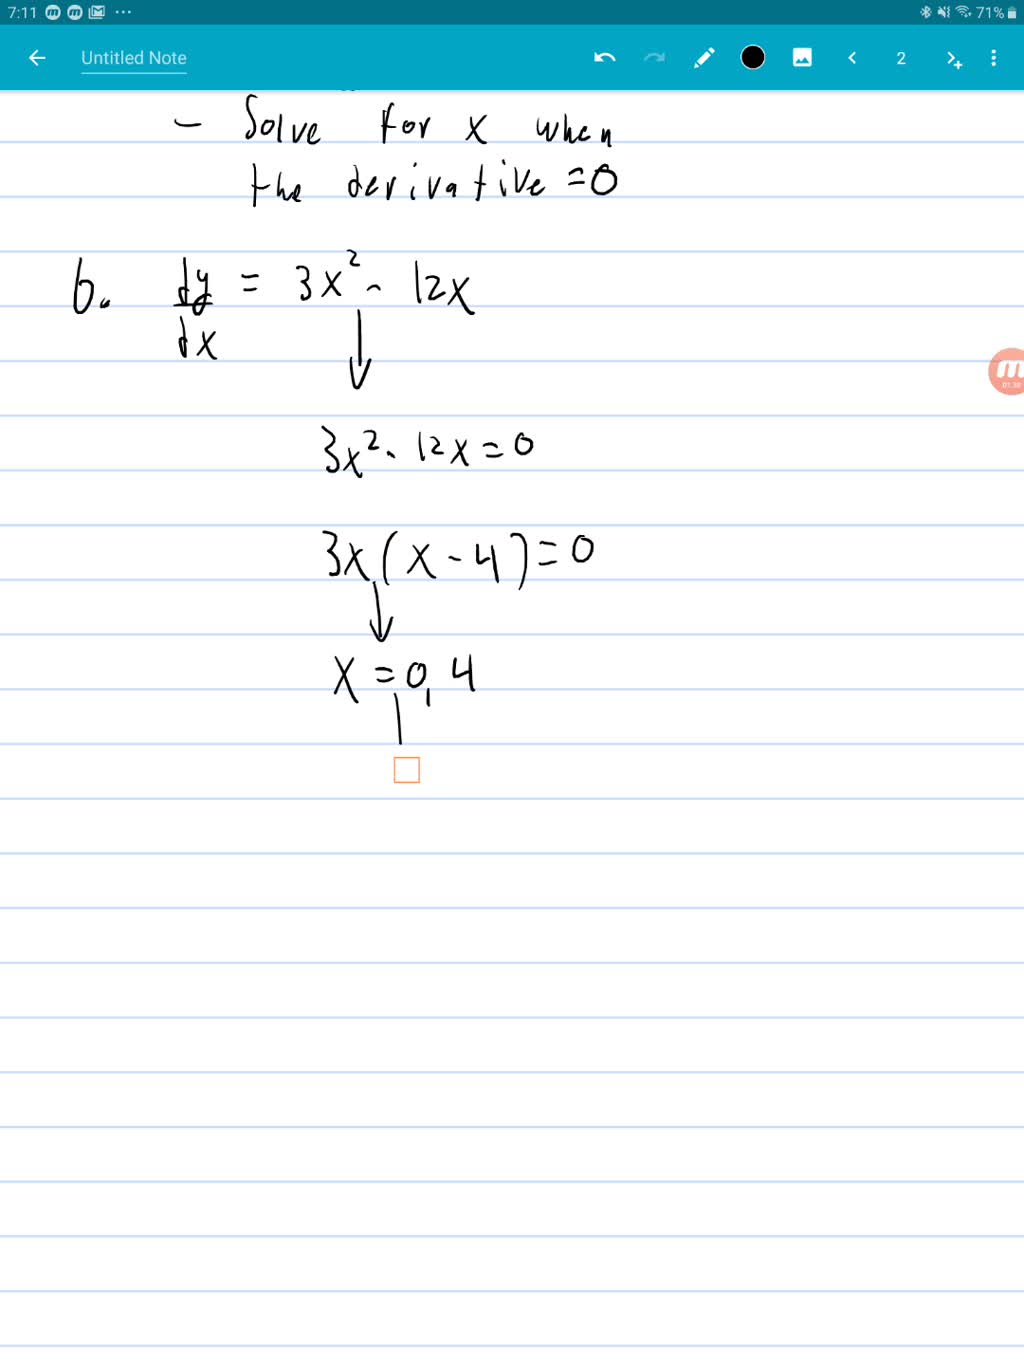 7:11 71%
Untitled Note 2
- Solve for x when
the derivative =0
6. dy/dx = 3x² - 12x
01:38
3x² - 12x = 0
3x(x-4)=0
x = 0, 4